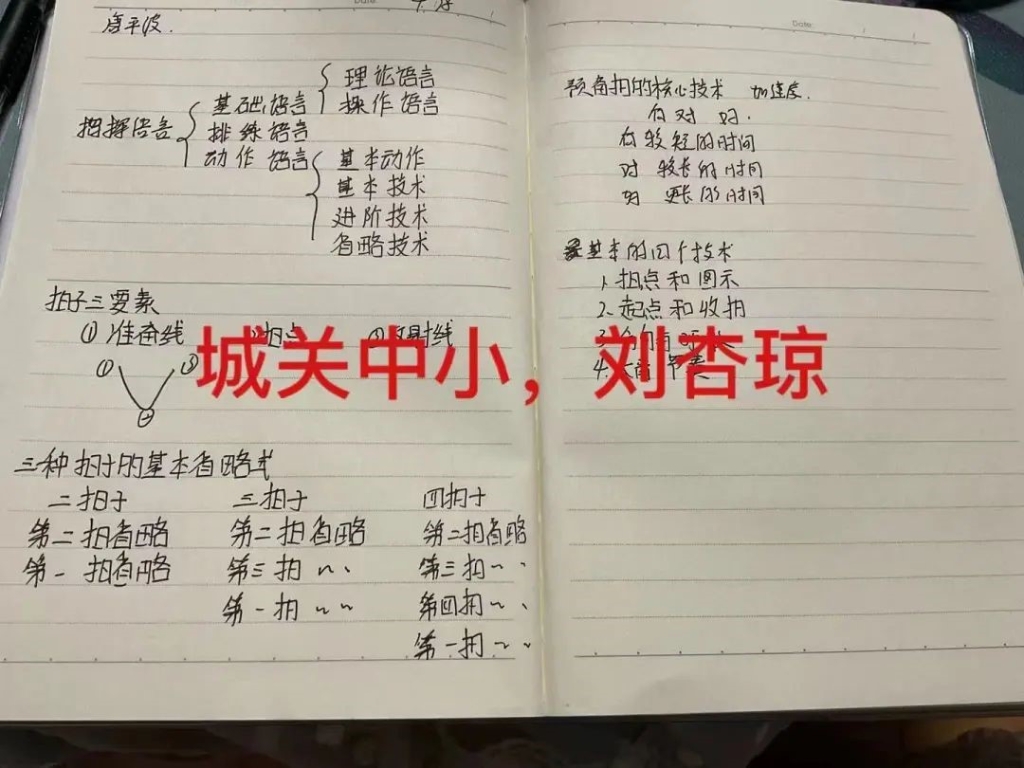 Date:
唐平波.
指挥语言
基础语言
理论语言
操作语言
排练语言
动作语言
基本动作
基本技术
进阶技术
省略技术
拍子三要素
① 准备线 ② 拍点 ③ 反射线
① ③
②
三种拍子的基本省略式
二拍子 三拍子 四拍子
第二拍省略 第二拍省略 第二拍省略
第一拍省略 第三拍 〃 第三拍 〃
第一拍 〃 第四拍 〃
第一拍 〃
Date:
预备拍的核心技术 加速度.
较短的时间
较长的时间
的时间
基本的四个技术
1. 拍点和图示
2. 起点和收拍
4.
城关中小，刘杏琼